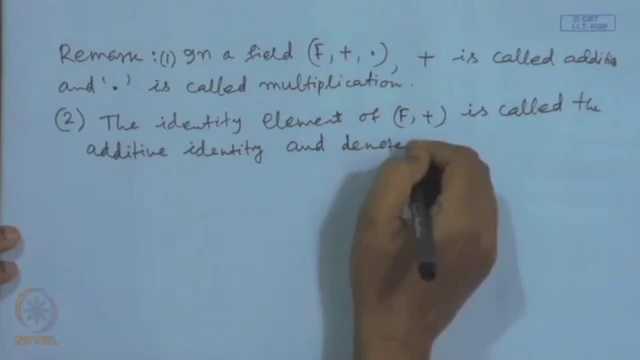 © CET
I.I.T. KGP
Remark :(1) In a field (F, +, ·), + is called addition
and '·' is called multiplication.
(2) The identity element of (F, +) is called the
additive identity and denote
NPTEL